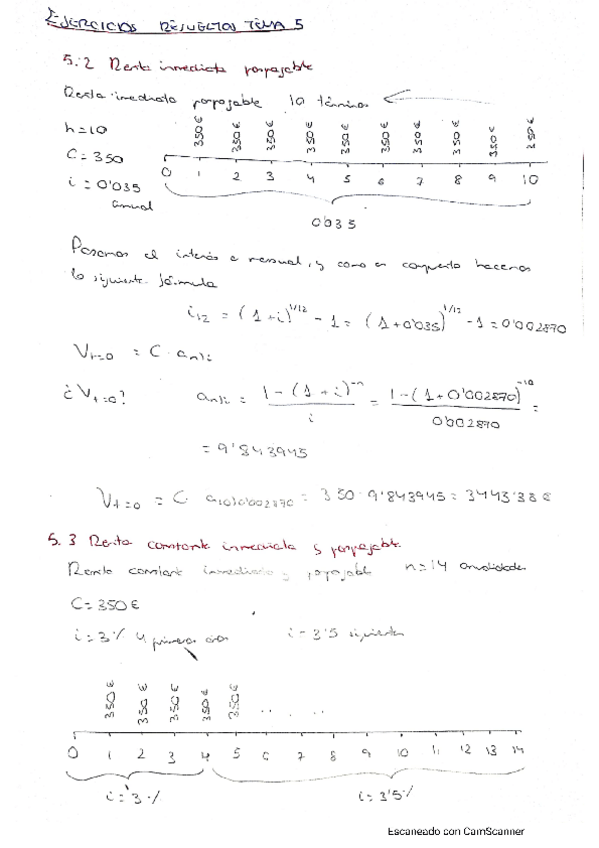 EJERCICIOS RESUELTOS TEMA 5
5.2 Renta inmediata pospagable
Renta inmediata pospagable 10 términos
n=10
C=350
i=0'035
anual
350€ 350€ 350€ 350€ 350€ 350€ 350€ 350€ 350€ 350€
0 1 2 3 4 5 6 7 8 9 10
0'035
Pasamos el interés a mensual, y como en compuesto hacemos
la siguiente fórmula
i12 = (1+i)^1/12 - 1 = (1+0'035)^1/12 - 1 = 0'002870
Vt=0 = C · an⌉i
¿Vt=0? an⌉i = 1-(1+i)^-n / i = 1-(1+0'002870)^-10 / 0'002870 =
= 9'843945
Vt=0 = C · a10⌉0'002870 = 350 · 9'843945 = 3443'38€
5.3 Renta constante inmediata y pospagable.
Renta constante inmediata y pospagable n=14 anualidades
C=350€
i=3% 4 primeros años i=3'5 siguientes
350€ 350€ 350€ 350€ 350€ .. . ..
0 1 2 3 4 5 6 7 8 9 10 11 12 13 14
i=3% i=3'5%
Escaneado con CamScanner